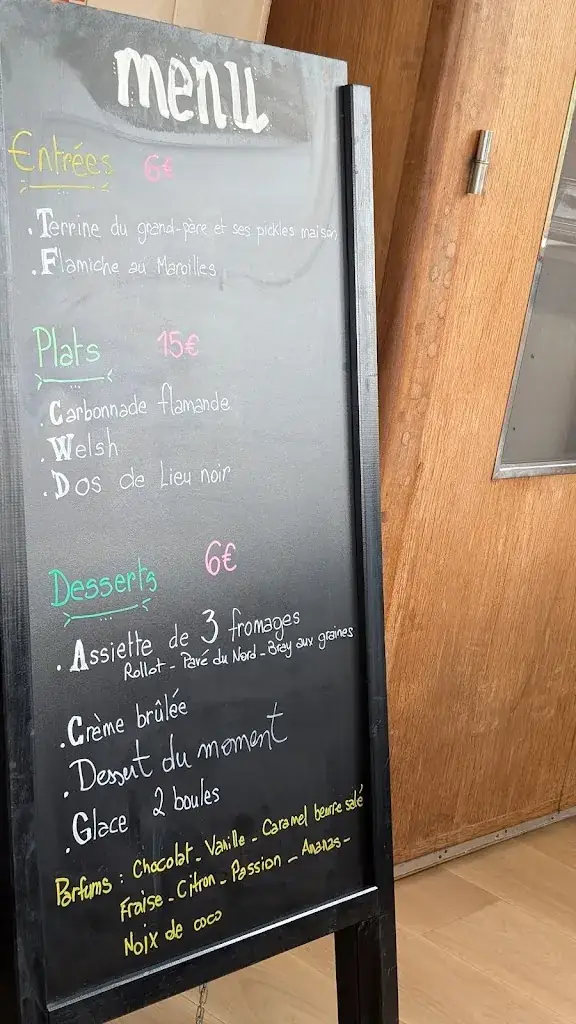 menu
Entrées 6€
. Terrine du grand-père et ses pickles maison
. Flamiche au Maroilles
Plats 15€
. Carbonnade flamande
. Welsh
. Dos de Lieu noir
Desserts 6€
. Assiette de 3 fromages
Rollot - Pavé du Nord - Bray aux graines
. Crème brûlée
. Dessert du moment
. Glace 2 boules
Parfums : Chocolat - Vanille - Caramel beurre salé
Fraise - Citron - Passion - Ananas -
Noix de coco